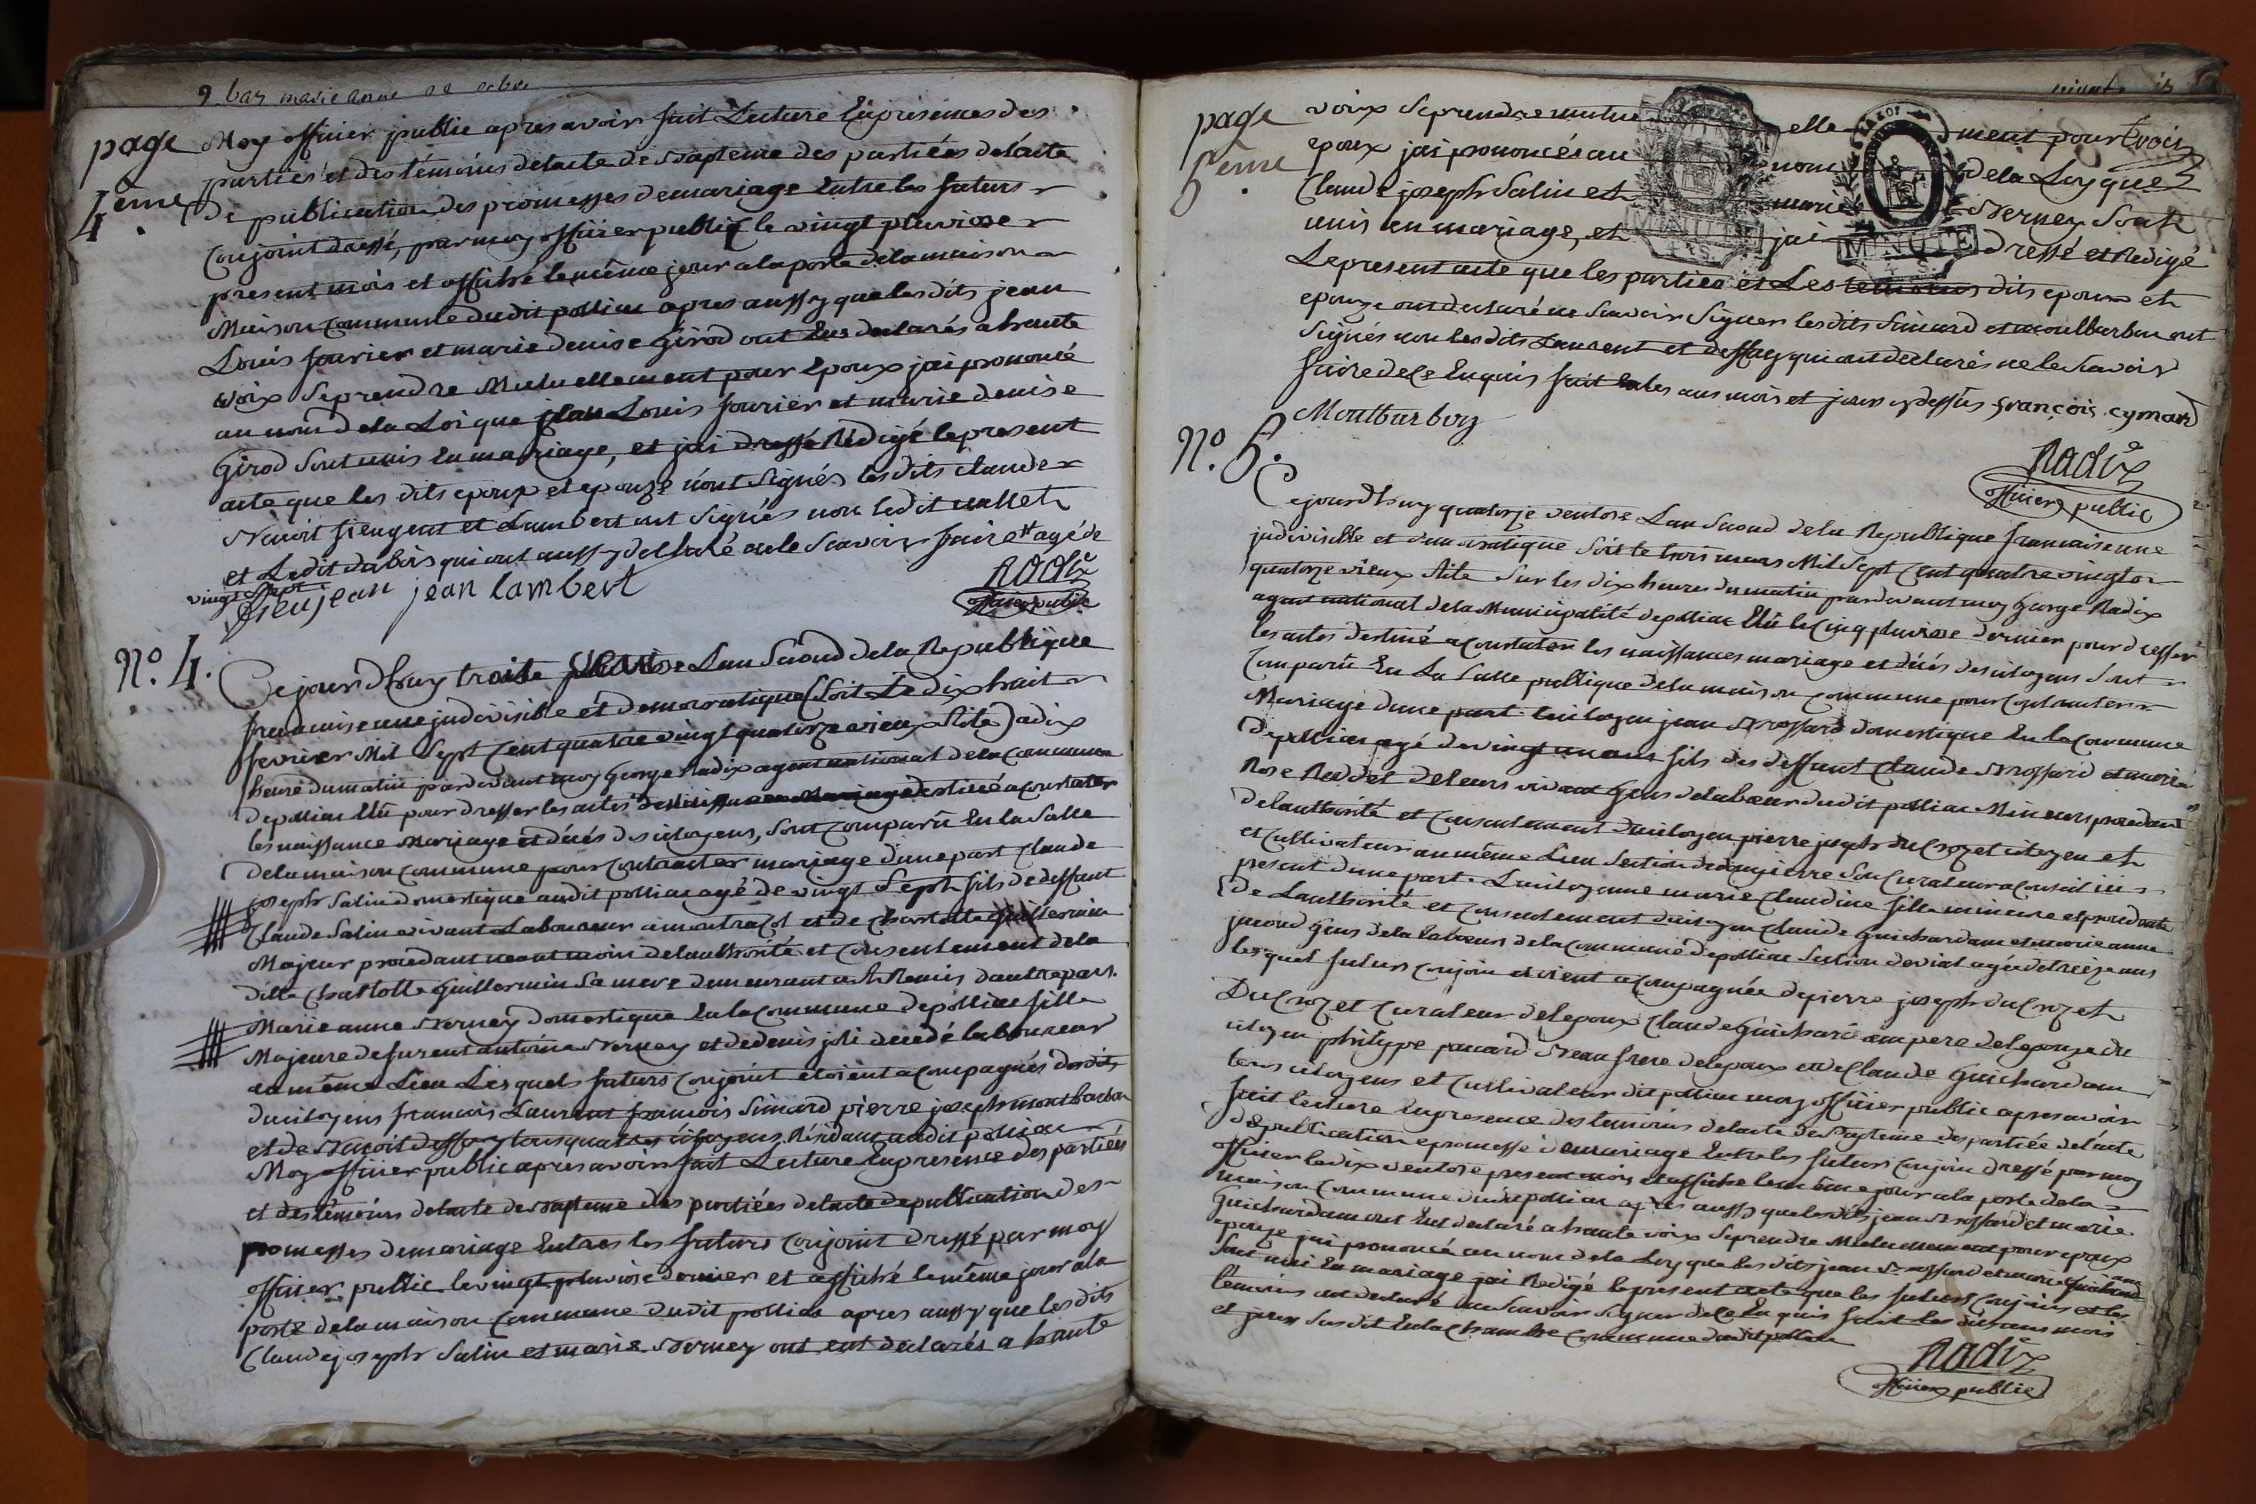 page
4ème
Moy officier public apres avoir fait Lecture En presences des
parties et des témoins delacte de Bapteme des partiées delacte
De publication des promesses de mariage Entre les futurs
Conjoint dressé, par moy officier public le vingt pluviose
present mois et affiché le même jour a la porte dela maison
Maison commune dudit polliac apres aussy que lesdits jean
Louis fourier et marie denise Girod ont Eus declarés a haute
voix Seprendre Mutuellement pour Epoux jai prononcé
au nom dela Loi que jean Louis fourier et marie denise
Girod Sont unis En mariage, et jai dressé Redigé le present
acte que les dits epoux et epouze n'ont Signés les dits claude
Benoit fieugent et Lambert ont Signés non ledit
et Ledit dubois qui ont aussy declaré ne le Scavoir faire agé de
vingt sept
jean lambert
Radix
officier public
No. 4.
Cejourdhuy trente pluviose Lan Second dela Republique
francaise une indivisible et democratique (Soit Le dix huit
fevrier Mil Sept Cent quatre vingt quatorze vieux Stile) a dix
heure du matin pardevant moy George Radix agent national dela commune
depolliac Elû pour dresser les actes destiné a Constater
les naissance Mariage et décés des citoyens, Sont Comparû En la Salle
dela maison commune pour Contracter mariage dune part Claude
joseph Salin domestique audit polliac agé de vingt Sept fils de deffunt
Claude Salin vivant Laboureur a montracol et de charlotte Guillermin
Majeur procedant neant moins delauthorité et Consentement dela
ditte Charlotte Guillermin Sa mere demeurant a St Remis dautre part
Marie anne Verney domestique En la Commune depolliac fille
Majeure defurent antoine Verney et dedenis joli decedé laboureur
au même Lieu Lesquels futurs Conjoint etoient acompagnés desdits
du citoyens francois Laurent francois Simard pierre joseph montbarbon
et de Benoit deffay tous quatres citoyens Résidant audit polliac
Moy officier public apres avoir fait Lecture En presence des partiées
et des témoins delacte de Bapteme des partiées delacte de publication des
promesses demariage Entres les futurs Conjoint dressé par moy
officier public le vingt pluviose dernier et affiché le même jour ala
porte dela maison Commune dudit polliac apres aussy que les dits
Claude joseph Salin et marie Verney ont ent declarés a haute
page
5ème
voix Seprendre mutuellement pour Epoux
epoux jai prononcés au nom dela Loy que
Claude joseph Salin et marie Verney Sont
unis en mariage, et jai dressé et Redigé
MINUTE
MINUTE
Le present acte que les parties et Les temoins dits epoux et
epouze ont declaré ne Scavoir Signer les dits Simard et montbarbon ont
Signés non les dits Laurent et deffay qui ont declarés ne le Scavoir
faire dece Enquis fait les ans mois et jours cydessus françois cymard
Montbarbon
Radix
officier public
No. 5.
Cejourdhuy quatorze ventose Lan Second dela Republique francaise une
indivisible et democratique Soit le trois mars Mil Sept Cent quatre vingt
quatorze vieux Stile Sur les dix heures du matin pardevant moy George Radix
agent national dela Municipalité depolliac Elû le Cinq pluviose dernier pour dresser
les actes destiné a Constater les naissances mariage et décés des citoyens Sont
Comparû En La Salle publique dela maison commune pour Contracter
Mariage dune part le citoyen jean Brossard domestique En la Commune
depolliac agé de vingt un ans fils des deffunt Claude Brossard et marie
Rose de leurs vivant Gens delabeur dudit polliac Mineur procedant
delauthorité et Consentement du citoyen pierre joseph duCroz et citoyen et
et Cultivateur au même Lieu Section Son Curateur a Conseil ici
present dune part. La citoyenne marie Claudine fille mineure et procedante
de Lauthorité et Consentement du citoyen Claude Guichardam et marie anne
jacoud Gens dela labeur dela Commune depolliac Section de vial agée de treize ans
lesquel futurs Conjoin etoient acompagnée de pierre joseph duCrozet
DuCrozet Curateur delepoux Claude Guichardam pere delepouze du
citoyen philippe pauard Beau frere delepoux et de Claude Guichardam
tous citoyens et Cultivateur dit polliac moy officier public apres avoir
fait lecture En presence des temoins delacte de Bapteme des partiée delacte
depublication epromesse demariage Entre les futurs Conjoin dressé par moy
officier le dix ventose present mois et affiché le même jour ala porte dela
maison Commune dudit polliac apres aussy que lesdits jean Brossard et marie
Guichardam ont Eut declaré a haute voix Seprendre Mutuellement pour epoux
epouze jai prononcé au nom dela Loy que les dits jean Brossard et marie Guichardam
Sont uni En mariage jai Redigé le present acte que les futurs Conjoins et les
témoins ont declaré ne Scavoir Signer dece Enquis fait les dits ans mois
et jours Susdit En la Chambre Commune dudit polliac
Radix
officier public